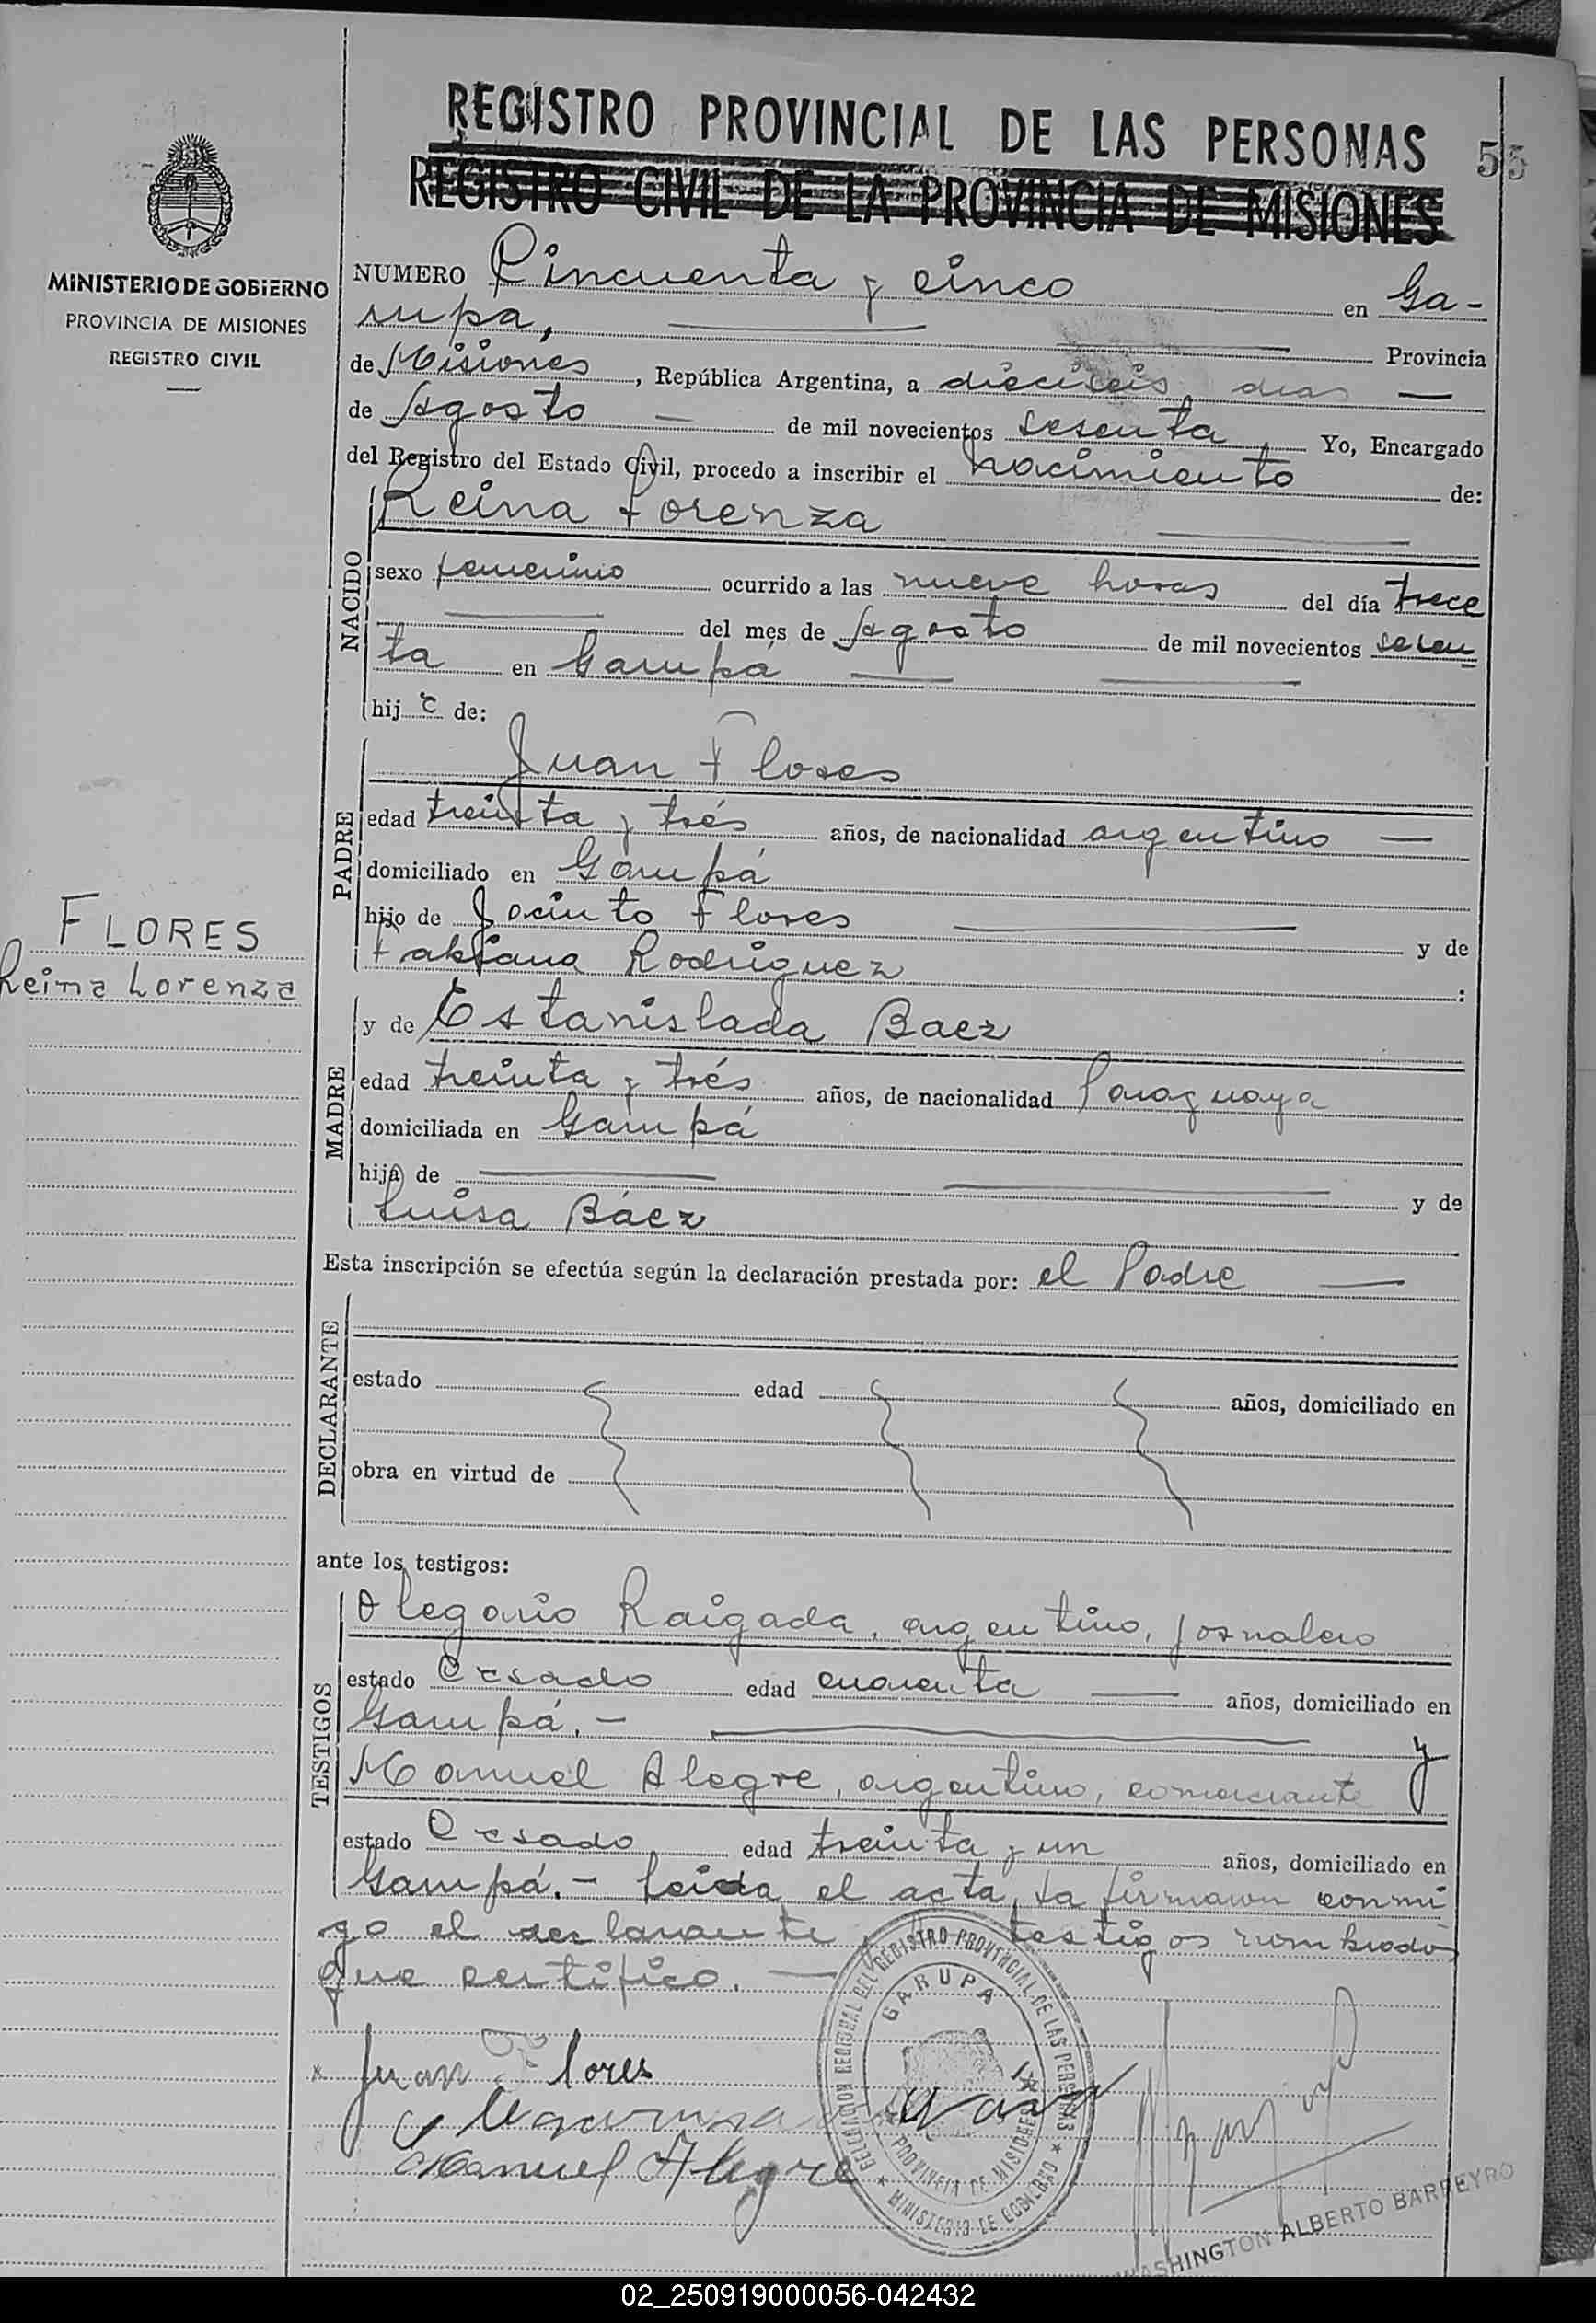 REGISTRO PROVINCIAL DE LAS PERSONAS
55
REGISTRO CIVIL DE LA PROVINCIA DE MISIONES
MINISTERIO DE GOBIERNO
PROVINCIA DE MISIONES
REGISTRO CIVIL
NUMERO Cincuenta y cinco en Ga-
rupa, Provincia
de Misiones, República Argentina, a dieciseis dias
de Agosto de mil novecientos sesenta, Yo, Encargado
del Registro del Estado Civil, procedo a inscribir el nacimiento de:
NACIDO
Reina Lorenza
sexo femenino ocurrido a las nueve horas del día trece
del mes de Agosto de mil novecientos sesen
ta en Garupá
hij a de:
PADRE
Juan Flores
edad treinta y trés años, de nacionalidad argentino
domiciliado en Garupá
hijo de Jacinto Flores y de
Fabiana Rodriguez :
FLORES
Reina Lorenza
MADRE
y de Estanislada Baez
edad treinta y trés años, de nacionalidad Paraguaya
domiciliada en Garupá
hija de y de
Luisa Báez
Esta inscripción se efectúa según la declaración prestada por: el Padre
DECLARANTE
estado edad años, domiciliado en
obra en virtud de
ante los testigos:
TESTIGOS
Olegario Raigada, argentino, jornalero
estado Casado edad cuarenta años, domiciliado en
Garupá.- y
Manuel Alegre, argentino, comerciante
estado Casado edad treinta y un años, domiciliado en
Garupá.- Leida el acta, la firmaron conmi
go el declarante y testigos nombrados
que certifico.
x Juan Flores
Manuel Alegre
DELEGACION REGIONAL DEL REGISTRO PROVINCIAL DE LAS PERSONAS
GARUPA
PROVINCIA DE MISIONES
MINISTERIO DE GOBIERNO
WASHINGTON ALBERTO BARREYRO
02_250919000056-042432